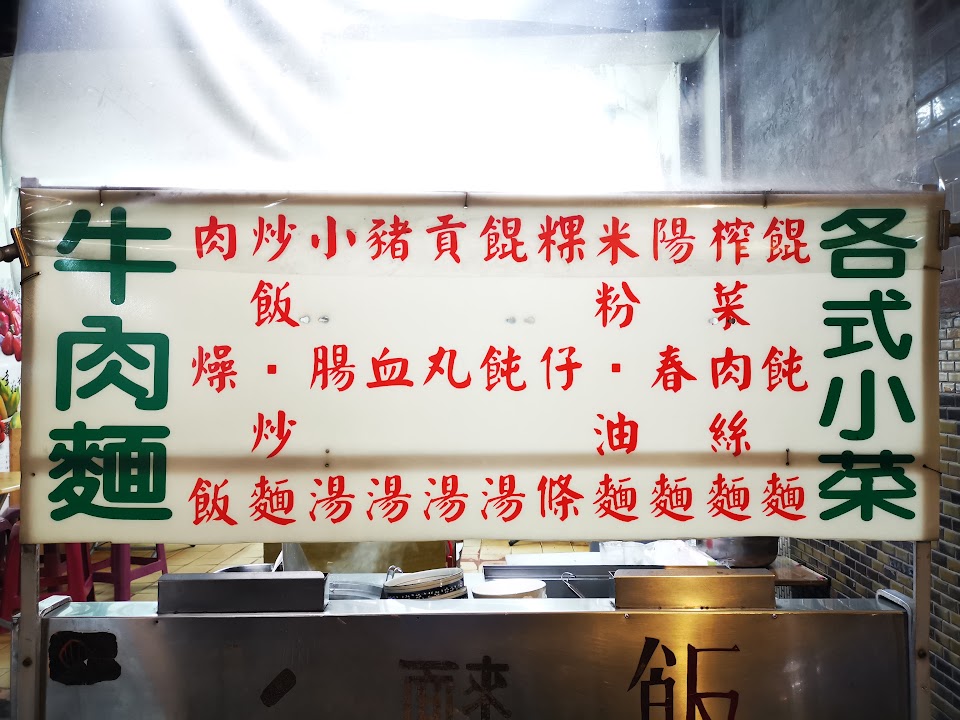 各式小菜
餛飩麵
榨菜肉絲麵
陽春麵
米粉·油麵
粿仔條
餛飩湯
貢丸湯
豬血湯
小腸湯
炒飯·炒麵
肉燥飯
牛肉麵
飯